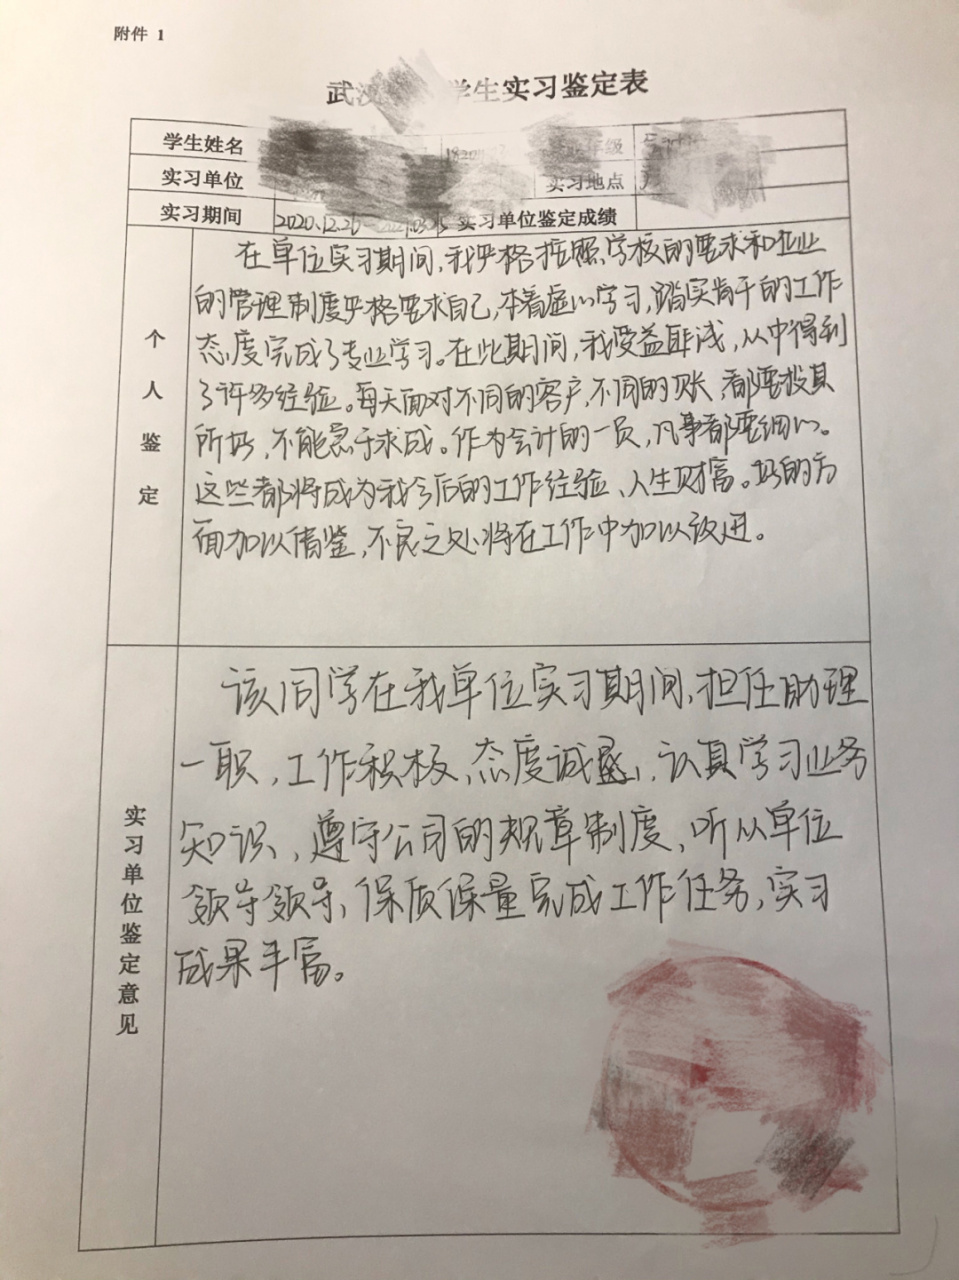 附件 1
武汉 学生实习鉴定表
学生姓名 年级
实习单位 实习地点
实习期间 2020.12.26 实习单位鉴定成绩
个人鉴定
在单位实习期间,我严格按照学校的要求和企业
的管理制度严格要求自己,本着虚心学习,踏实肯干的工作
态度完成了专业学习。在此期间,我受益匪浅,从中得到
了许多经验。每天面对不同的客户,不同的账,都要投其
所好,不能急于求成。作为会计的一员,凡事都要细心。
这些都将成为我今后的工作经验、人生财富。好的方
面加以借鉴,不良之处将在工作中加以改进。
实习单位鉴定意见
该同学在我单位实习期间,担任助理
一职,工作积极,态度诚恳,认真学习业务
知识、遵守公司的规章制度、听从单位
领导领导,保质保量完成工作任务,实习
成果丰富。